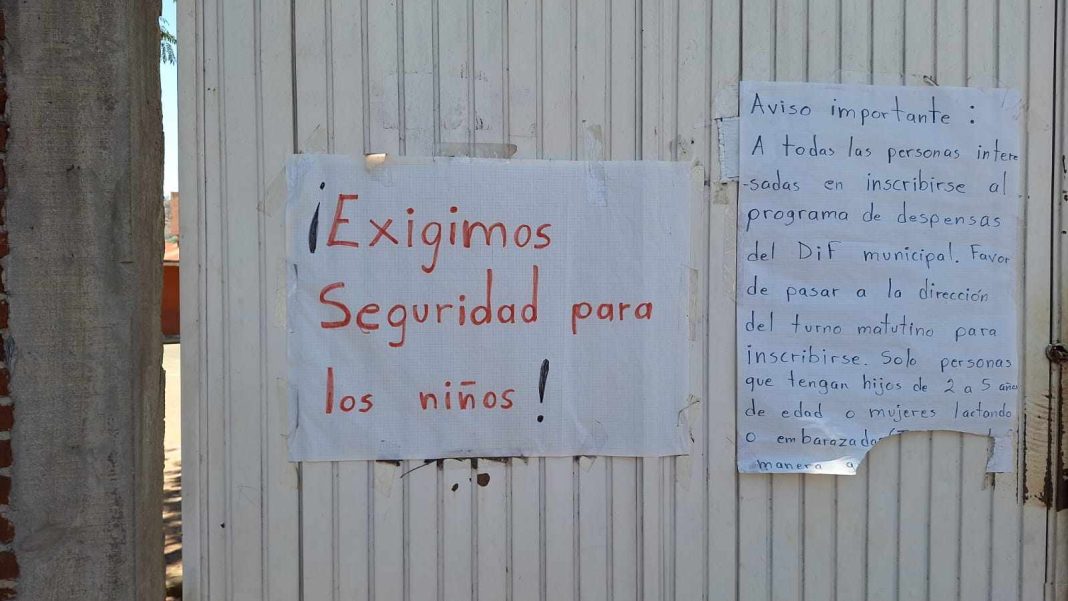 ¡Exigimos
Seguridad para
los niños!
Aviso importante:
A todas las personas intere
-sadas en inscribirse al
programa de despensas
del DiF municipal. Favor
de pasar a la dirección
del turno matutino para
inscribirse. Solo personas
que tengan hijos de 2 a 5 años
de edad o mujeres lactando
o embarazada
manera a